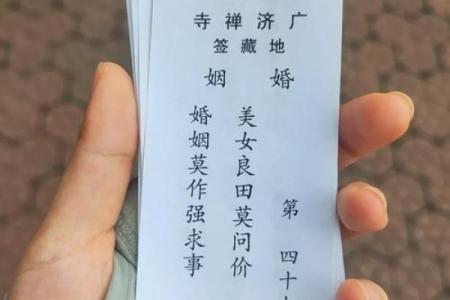 广济禅寺
地藏签
婚姻
第四十
美女良田莫问价
婚姻莫作强求事